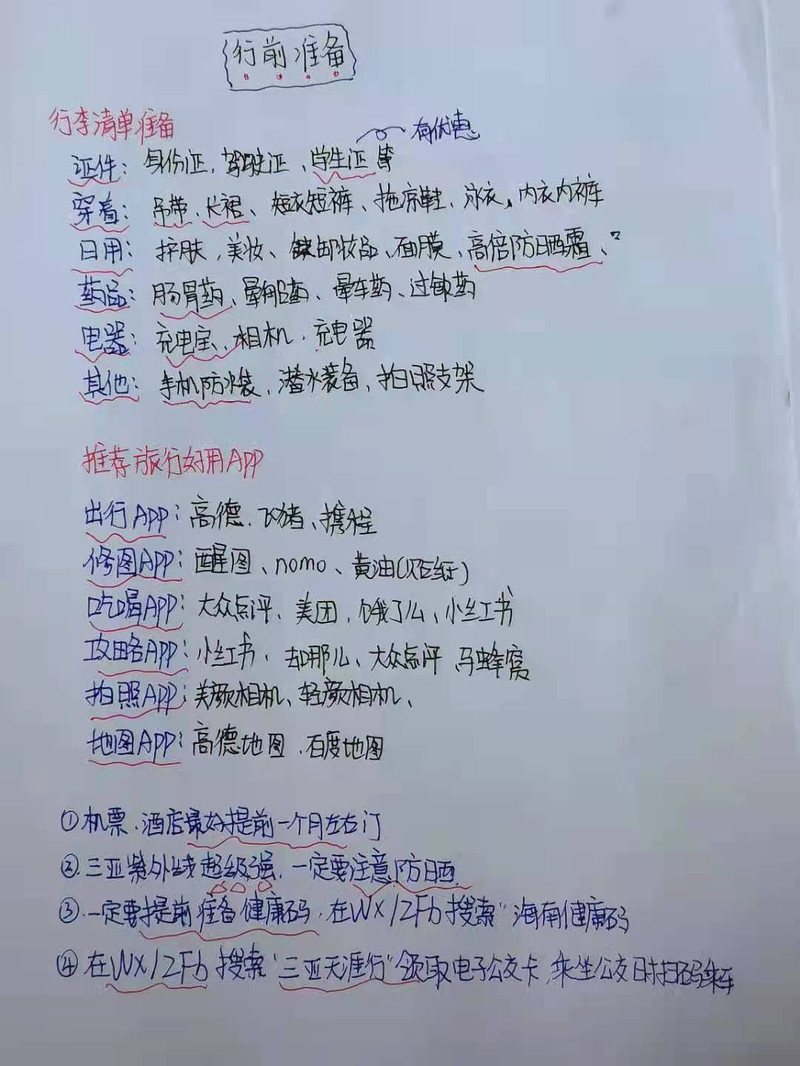 行前准备
行李清单准备
有优惠
证件：身份证，驾驶证、学生证等
穿着：吊带、长裙、短衣短裤、拖凉鞋、泳衣、内衣内裤
日用：护肤，美妆、卸妆品、面膜、高倍防晒霜、
药品：肠胃药、晕船药、晕车药、过敏药
电器：充电宝、相机、充电器
其他：手机防水袋、潜水装备、拍照支架
推荐旅行好用APP
出行APP：高德、飞猪、携程
修图APP：醒图、nomo、黄油(汉纸)
吃喝APP：大众点评、美团、饿了么、小红书
攻略APP：小红书、去哪儿、大众点评 马蜂窝
拍照APP：美颜相机、轻颜相机、
地图APP：高德地图、百度地图
①机票、酒店最好提前一个月左右订
②三亚紫外线超级强，一定要注意防晒.
③一定要提前准备健康码，在WX/ZFb搜索"海南健康码
④在WX/ZFb搜索"三亚天涯行"领取电子公交卡，乘坐公交时扫码乘车